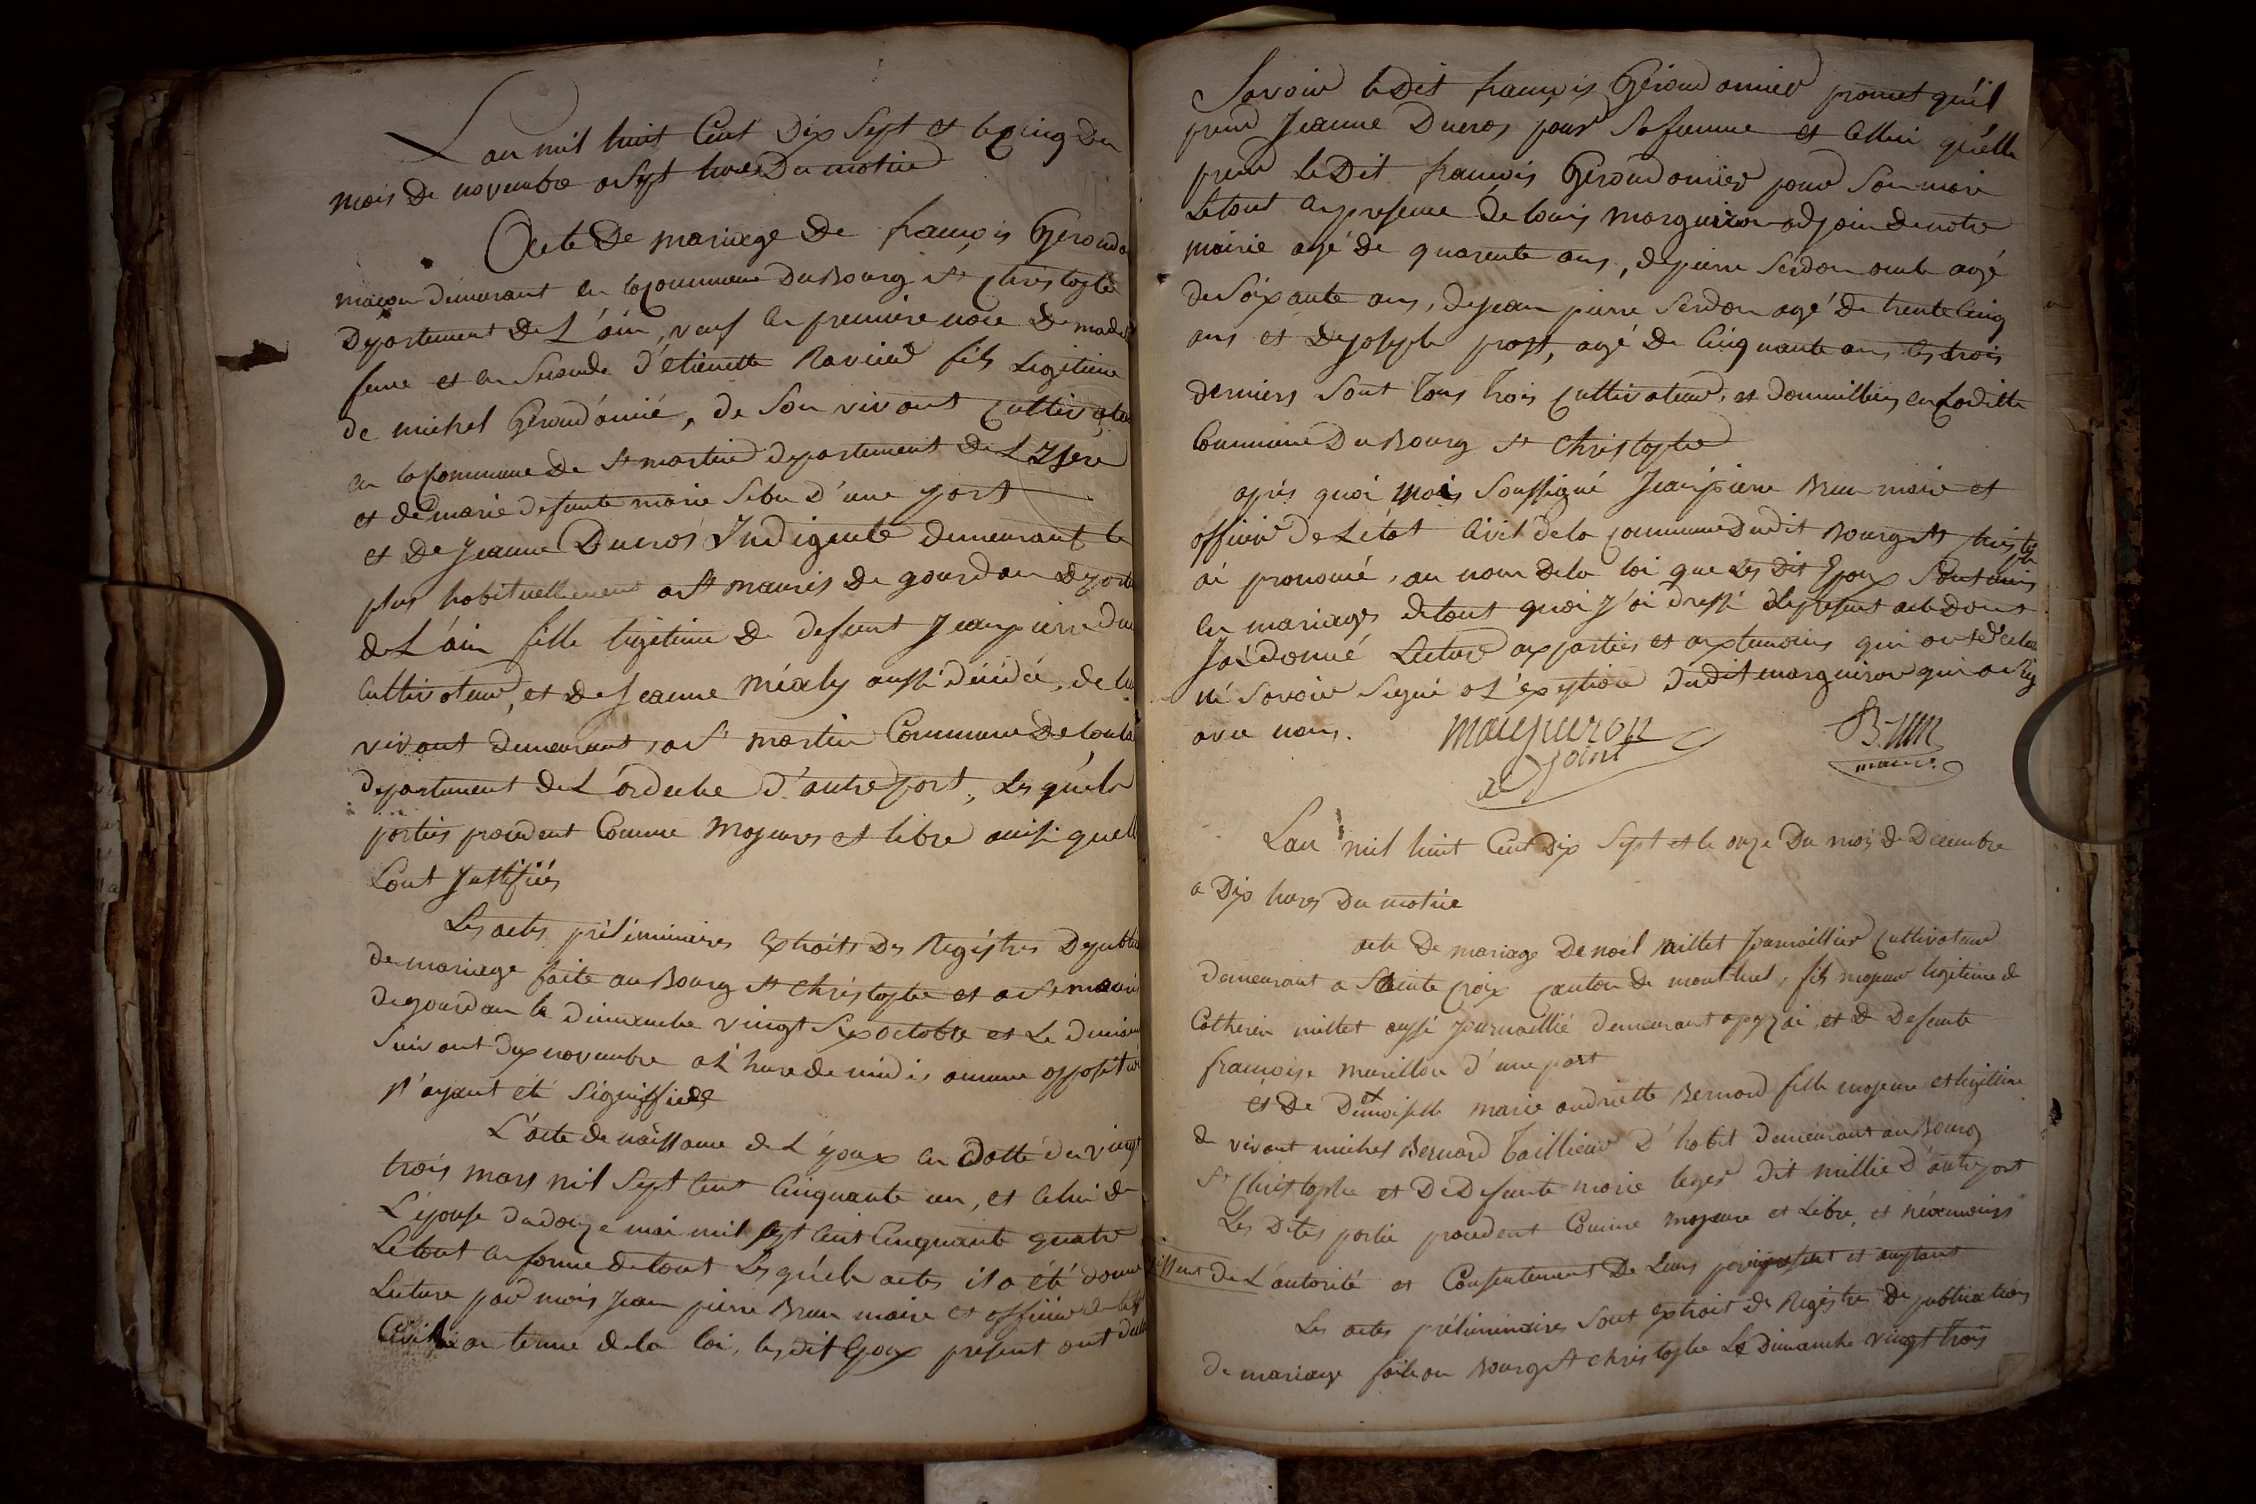 L an mil huit Cent Dix Sept et le cinq du
mois de novembre a Sept heures Du matin
Acte De mariage De françois Gerond
maçon demeurant en la commune Du Bourg St Christophe
Departement de L'ain, veuf en premiere noce de
et en Seconde d'étienette Ravier fils Legitime
de michel Gerondonié, de Son vivant Cultivateu
en la Commune de St martin departement de L'Isere
et de marie defunte marie d'une part
et De Jeanne Ducros Indigente demeurant le
plus habituellement a St mauris de gourdan depart
de L'ain fille legitime de defunt Jean pierre Du
Cultivateur, et De Jeanne aussi décédée, de leu
vivant demeurant, a St martin Commune De
departement de L'ardeche D'autre part, Les quels
parties procedent Comme majeures et libre ainsi quell
L'ont Justifiés
Les actes préliminaires Extraits Des Registres De publi
de mariage faite au Bourg St Christophe et a St mauris
de gourdan le dimanche vingt Six octobre et Le diman
Suivant deux novembre a L'heure de midi, aucune opposition
N'ayant été Signiffiée
L'acte de naissance de L'époux en Datte du vingt
trois mars mil Sept Cent Cinquante un, et Celui de
L'épouse du douze mai mil sept Cent Cinquante quatre
Le tout en forme de tout Les quels actes il a été donné
Lecture par mois Jean pierre Brun maire et officier de
Civil au terme de la loi, les dit Epoux present ont
Savoir le Dit françois Gerondonnier promet qu'il
prend Jeanne Ducros pour Sa femme et Celle ci qu'elle
prend Le Dit françois Gerondonnier pour Son mari
Le tout en presence De louis marguiron adjoin de notre
mairie agé de quarente ans, de pierre Serdon agé
de Soixante ans, de jean pierre Serdon agé de trente Cinq
ans et de joseph prost, agé de Cinquante ans les trois
derniers Sont Tous trois Cultivateur, et domicilliés en Laditte
Commune Du Bourg St Christophe
apris quoi mois Soussigné Jean pierre Brun maire et
officier de L'état Civil de la Commune Dudit Bourg St Christophe
ai prononcé, au nom De la loi que Les Dit Epoux Sont unis
en mariages de tout quoi J'ai dressé le present acte dont
J'ai donné Lecture aux parties et aux temoins qui ont declaré
né Savoir Signé a L'exeption Dudit marguiron qui a Sig
avec nous.
marguiron
adjoint
Brun
maire
Lan mil huit Cent Dix Sept et le onze Du mois de Decembre
a Dix heures Du matin
acte De mariage De noël millet Journaillier Cultivateur
demeurant a Sainte Croix Canton de montluel, fils majeur legitime de
Catherin millet aussi Journaillié demeurant a , et de Defunte
françoise murillon d'une part
et De Demoiselle marie andriette Bernard fille majeure et legitime
de vivant michel Bernard Taillieur D'habit demeurant au Bourg
St Christophe et De Defunte marie leger dit millie D'autre part
Les Dites partie procedent Comme majeure et Libre, et néxemoins
de L'autorité et Consentement De Leurs present et acceptant
Les actes préliminaires Sont extrait de Registres De publications
de mariage faite au Bourg St Christophe Le Dimanche vingt trois